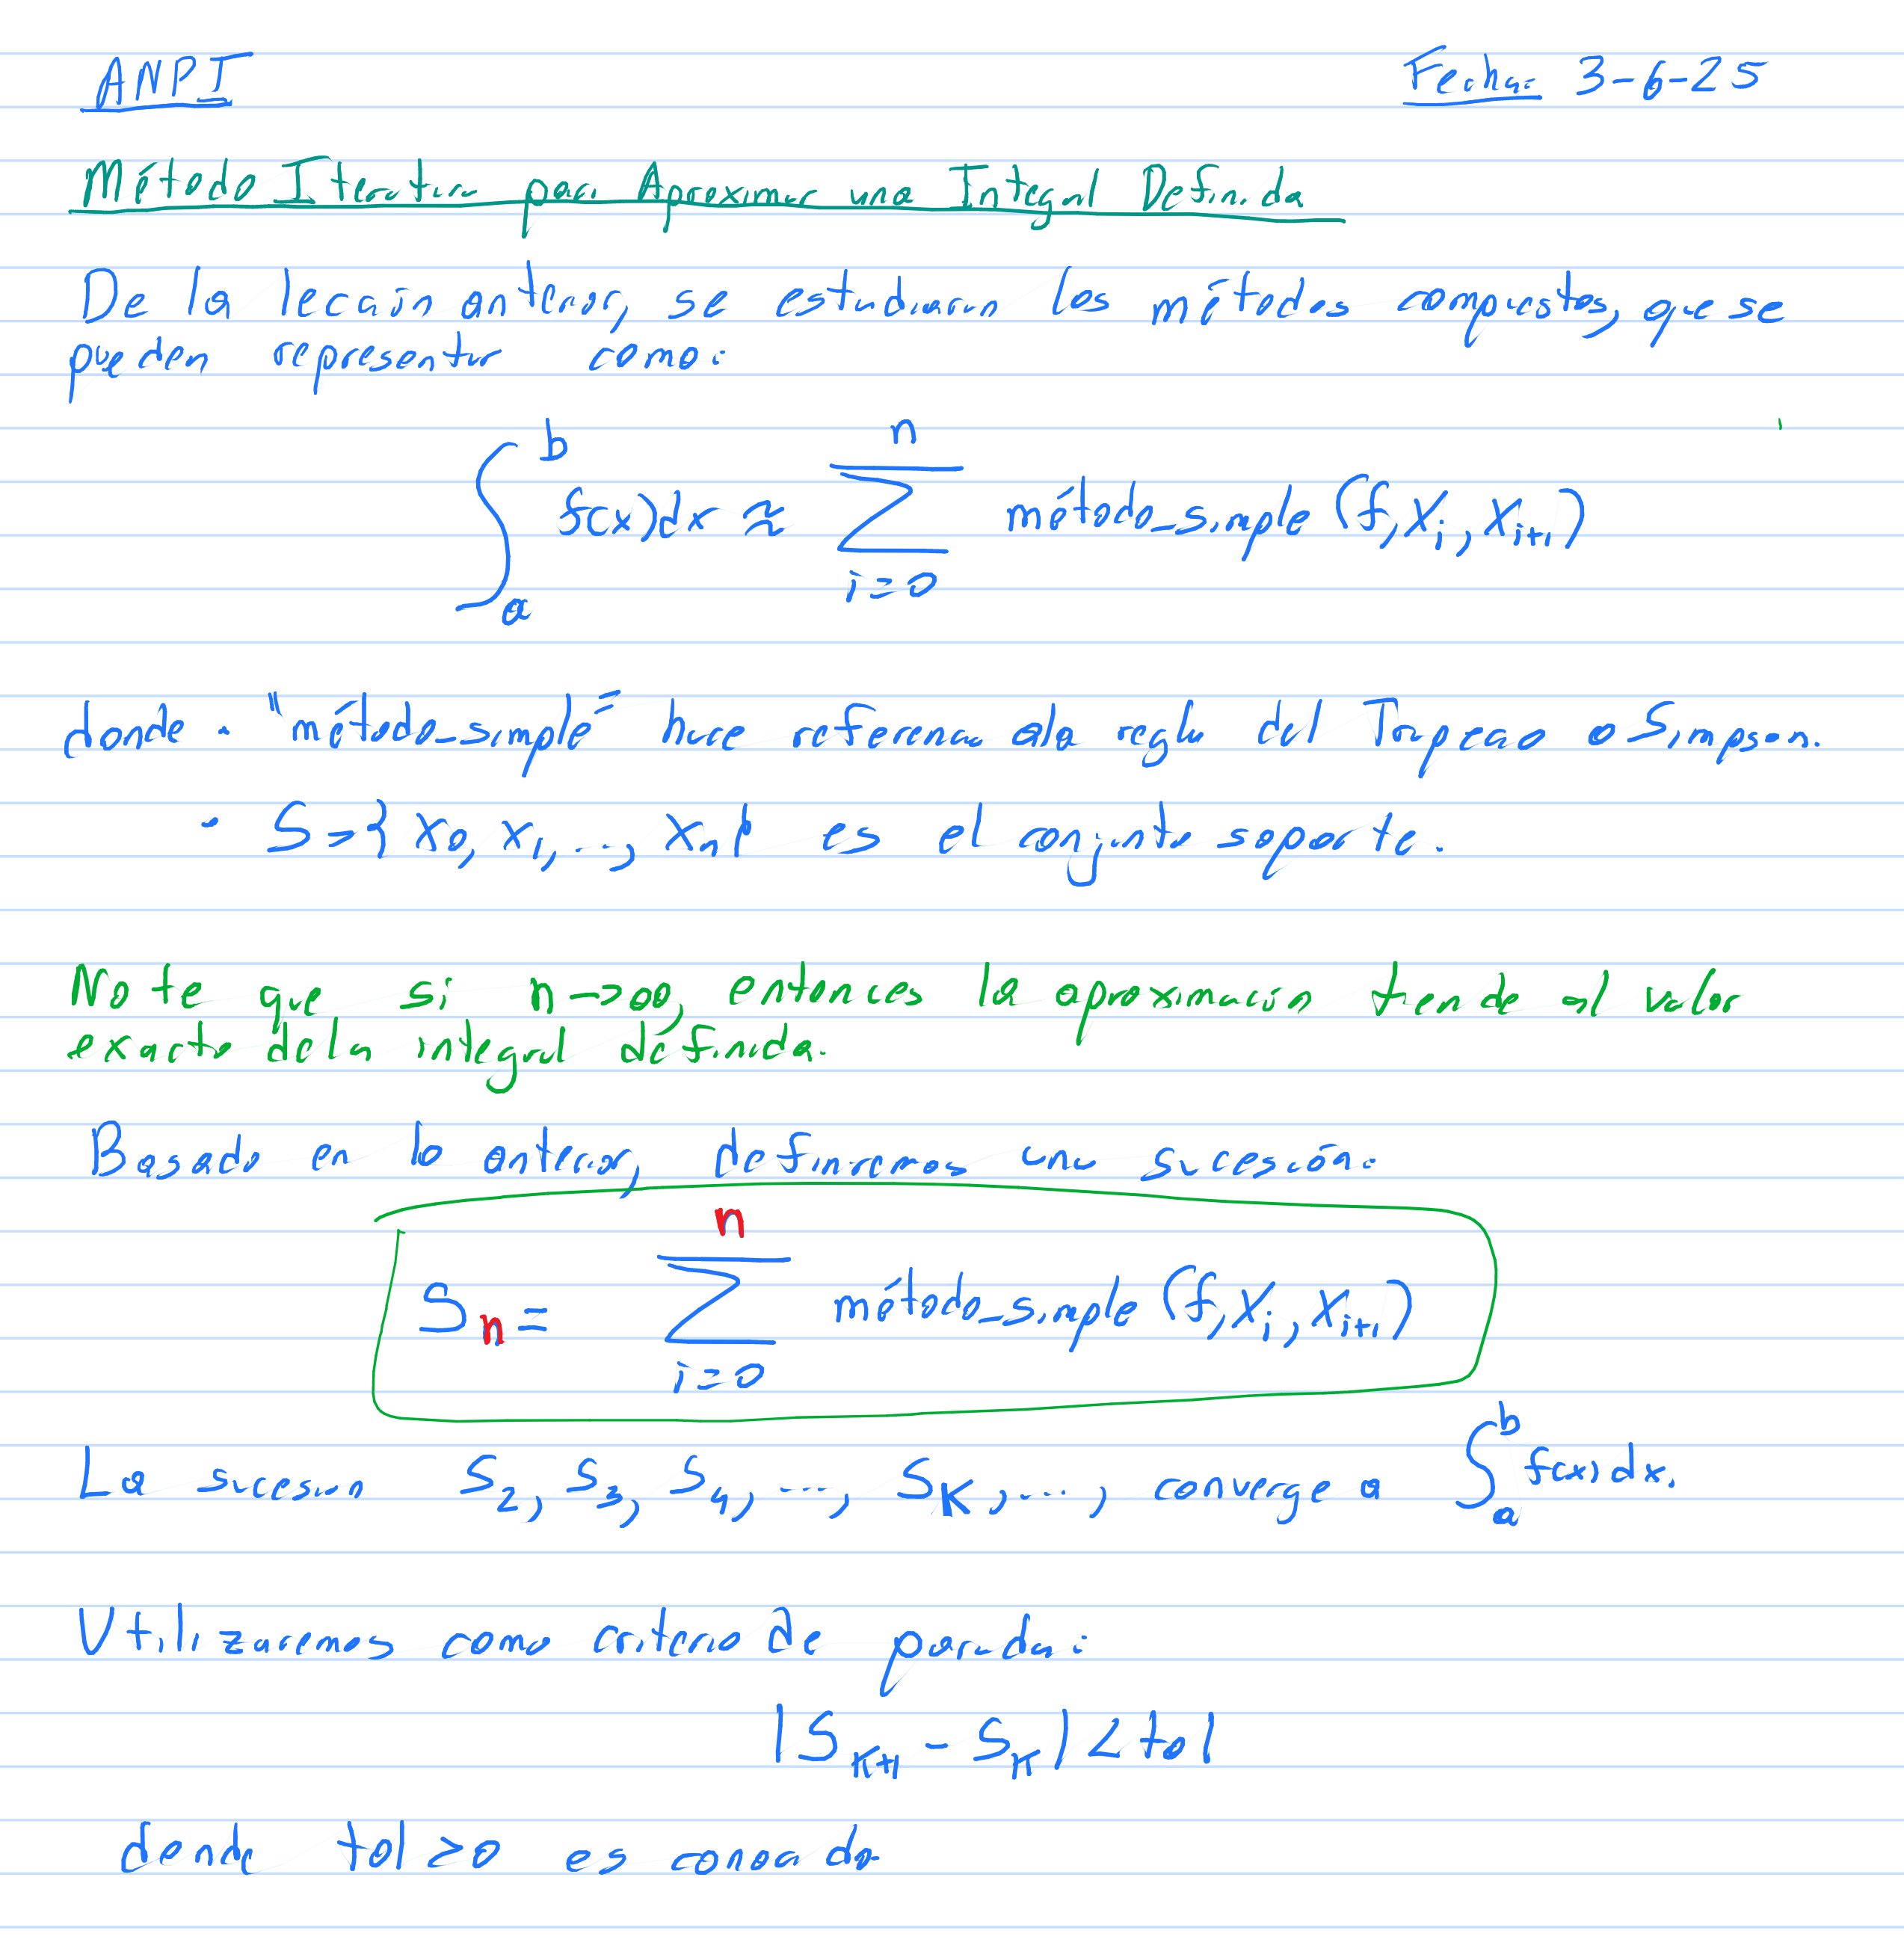 ANPI Fecha: 3-6-25
Método Iterativo para Aproximar una Integral Definida
De la lección anterior, se estudiaron los métodos compuestos, que se
pueden representar como:
∫_a^b f(x)dx ≈ ∑_{i=0}^{n} método_simple (f, x_i, x_{i+1})
donde • "método_simple" hace referencia a la regla del Trapecio o Simpson.
• S={x_0, x_1, ..., x_n} es el conjunto soporte.
Note que si n→∞, entonces la aproximación tiende al valor
exacto de la integral definida.
Basado en lo anterior, definiremos una sucesión:
S_n = ∑_{i=0}^{n} método_simple (f, x_i, x_{i+1})
La sucesión S_2, S_3, S_4, ..., S_K, ..., converge a ∫_a^b f(x)dx.
Utilizaremos como criterio de parada:
|S_{K+1} - S_K| < tol
donde tol >0 es conocido